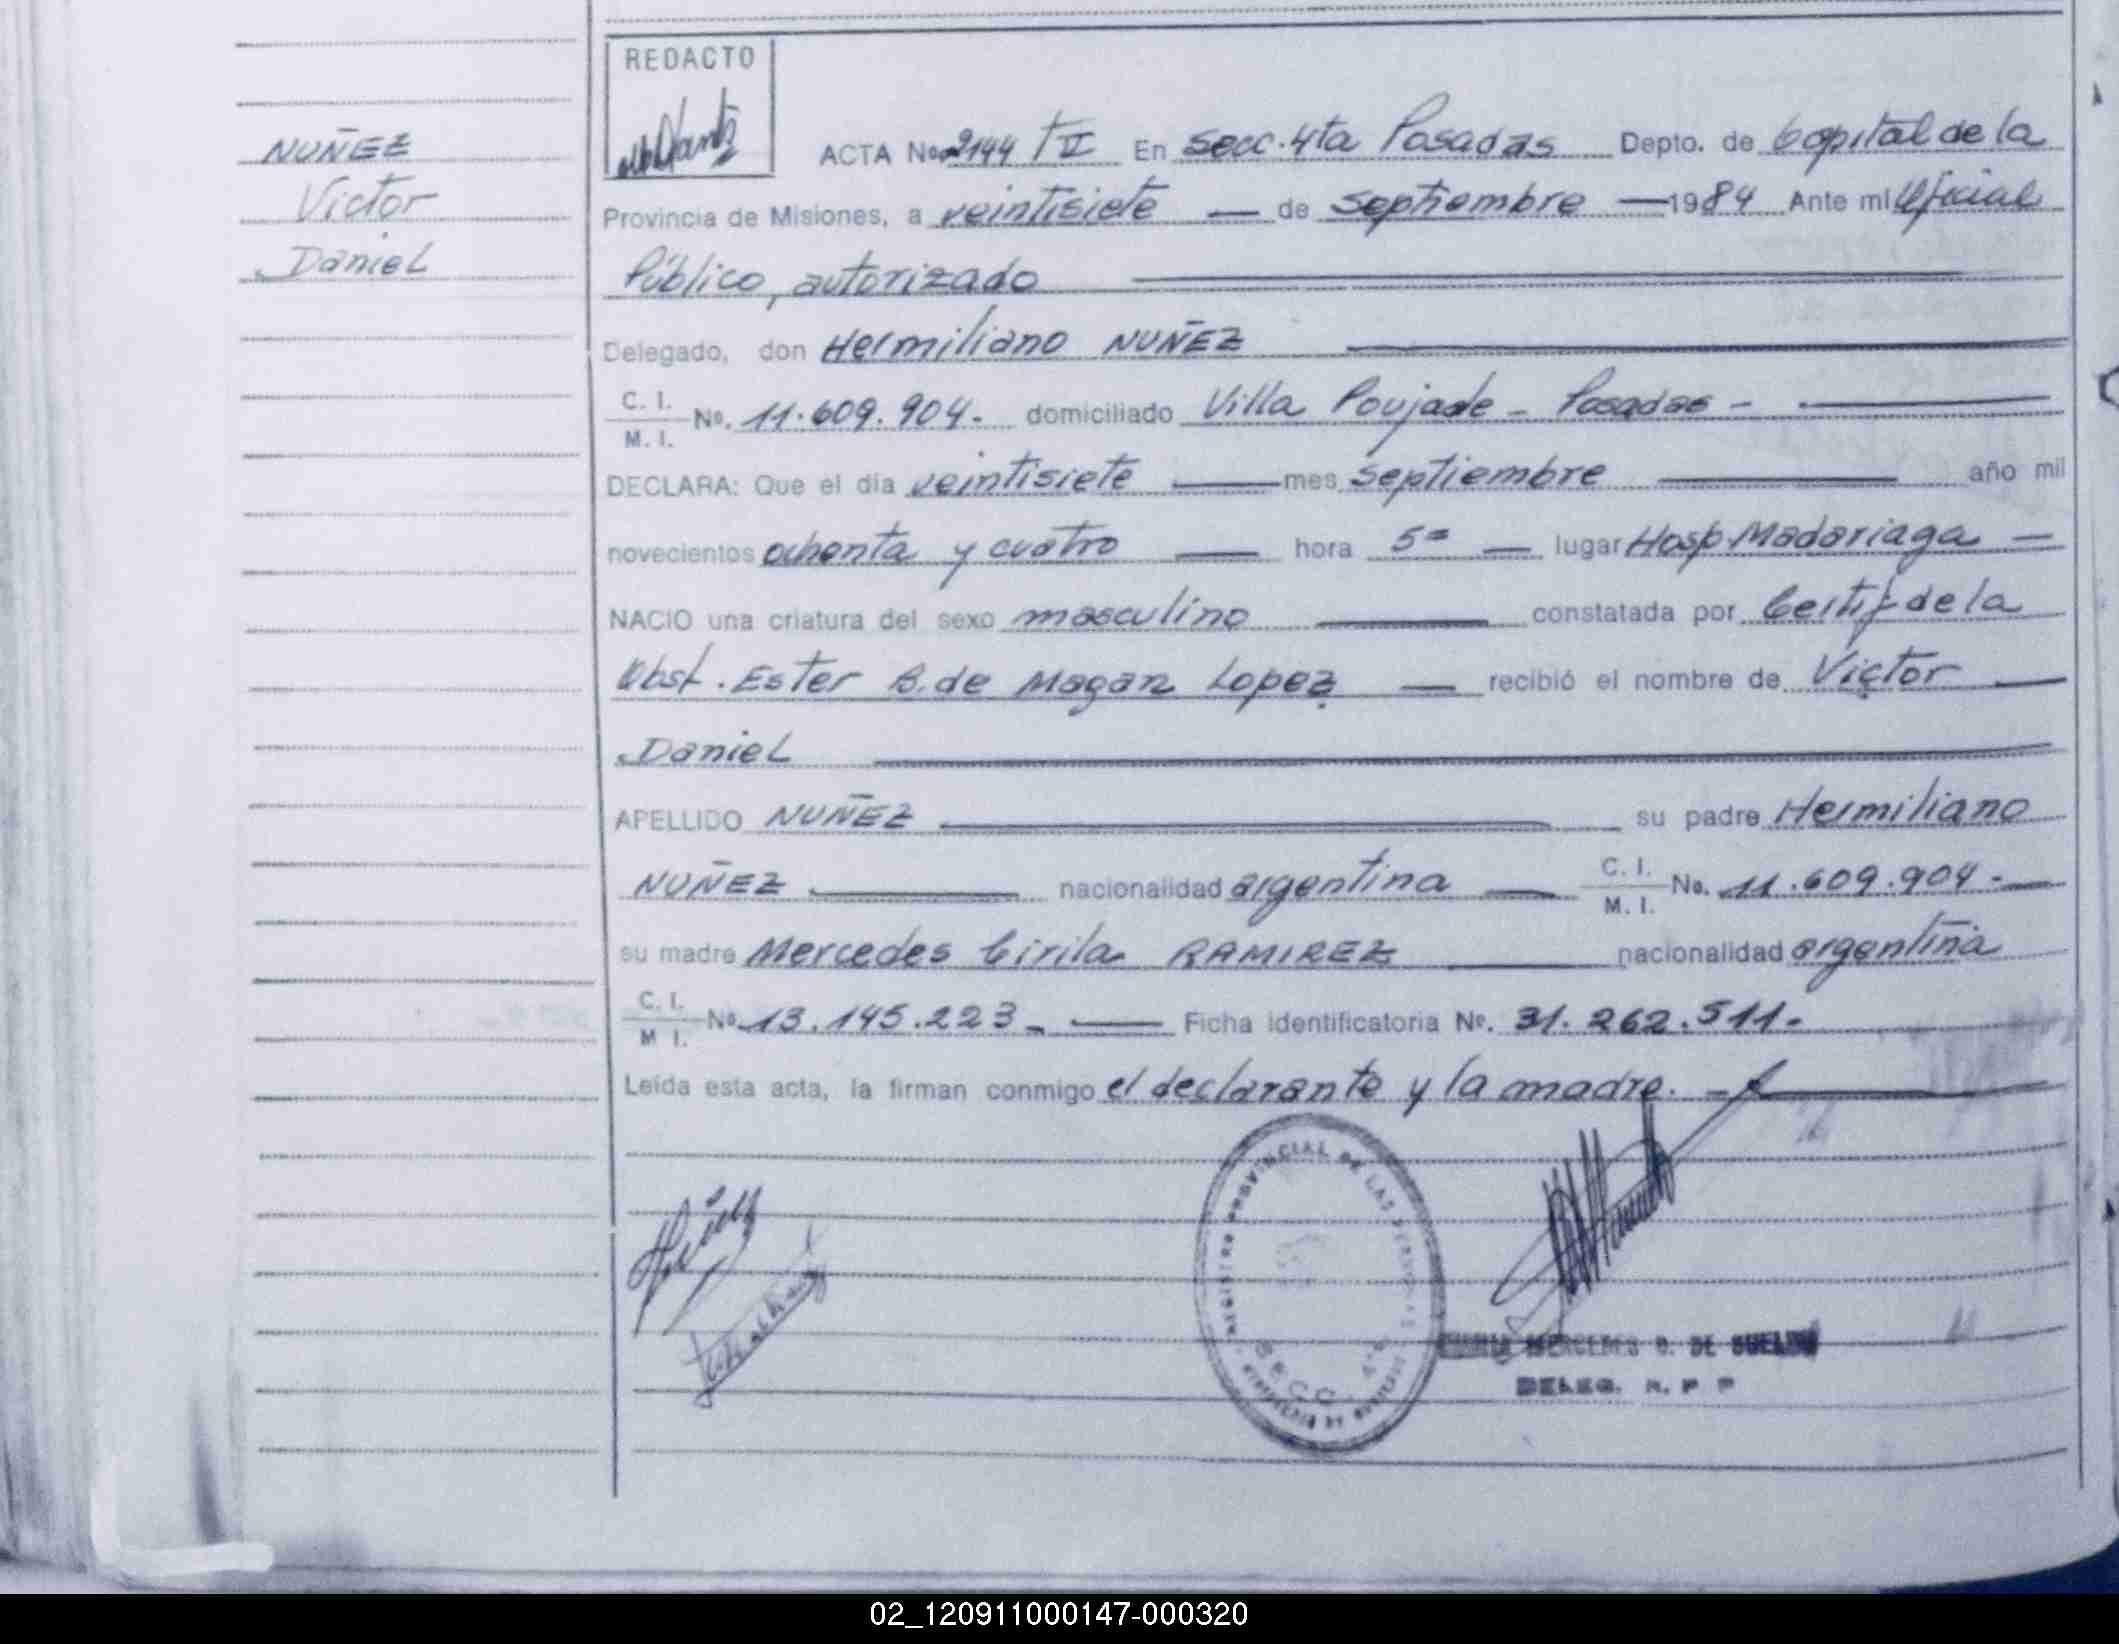 REDACTO
NUÑEZ
Victor
Daniel
ACTA No. 2144 T V En Secc. 4ta Posadas Depto. de Capital de la
Provincia de Misiones, a veintisiete — de septiembre — 1984 Ante mi Oficial
Público, autorizado
Delegado, don Hermiliano NUÑEZ
C. I.
M. I. No. 11.609.904.- domiciliado Villa Poujade - Posadas -
DECLARA: Que el día veintisiete — mes septiembre — año mil
novecientos ochenta y cuatro — hora 5= — lugar Hosp. Madariaga —
NACIO una criatura del sexo masculino — constatada por Certif. de la
Obst. Ester B. de Magan Lopez — recibió el nombre de Victor —
Daniel
APELLIDO NUÑEZ — su padre Hermiliano
NUÑEZ — nacionalidad argentina — C. I.
M. I. No. 11.609.904.-
su madre Mercedes Cirila RAMIREZ — nacionalidad argentina
C. I.
M I. No 13.145.223.- — Ficha identificatoria No. 31.262.511.-
Leída esta acta, la firman conmigo el declarante y la madre. -
REGISTRO PROVINCIAL DE LAS PERSONAS
SECC. 4ta
MERCEDES DE
DELEG. R. P P
02_120911000147-000320